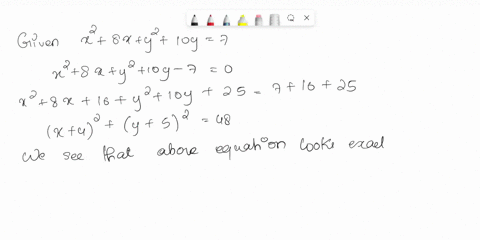 Given x² + 8x + y² + 10y = 7
x² + 8x + y² + 10y - 7 = 0
x² + 8x + 16 + y² + 10y + 25 = 7 + 16 + 25
(x + 4)² + (y + 5)² = 48
We see that above equation looks exael